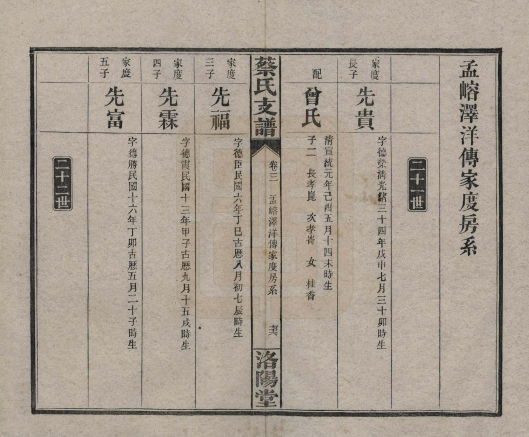 孟嵱澤洋傳家度房系
二十一世
家度長子
先貴
字德榮清光緒三十四年戊申七月三十卯時生
配
曾氏
清宣統元年己酉五月十四未時生
子二 長孝崑 次孝嵛 女 桂香
蔡氏支譜
卷三 孟嵱澤洋傳家度房系
洛陽堂
家度三子
先福
字德臣民國六年丁巳古曆八月初七辰時生
家度四子
先霖
字德雨民國十三年甲子古曆九月十五戌時生
家度五子
先富
字德勝民國十六年丁卯古曆五月二十子時生
二十二世